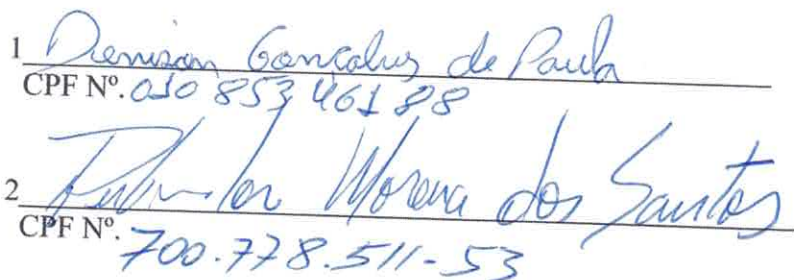 1 Denison Gonçalves de Paula
CPF Nº. 010 853 461 88
2 Moreira dos Santos
CPF Nº. 700.778.511-53